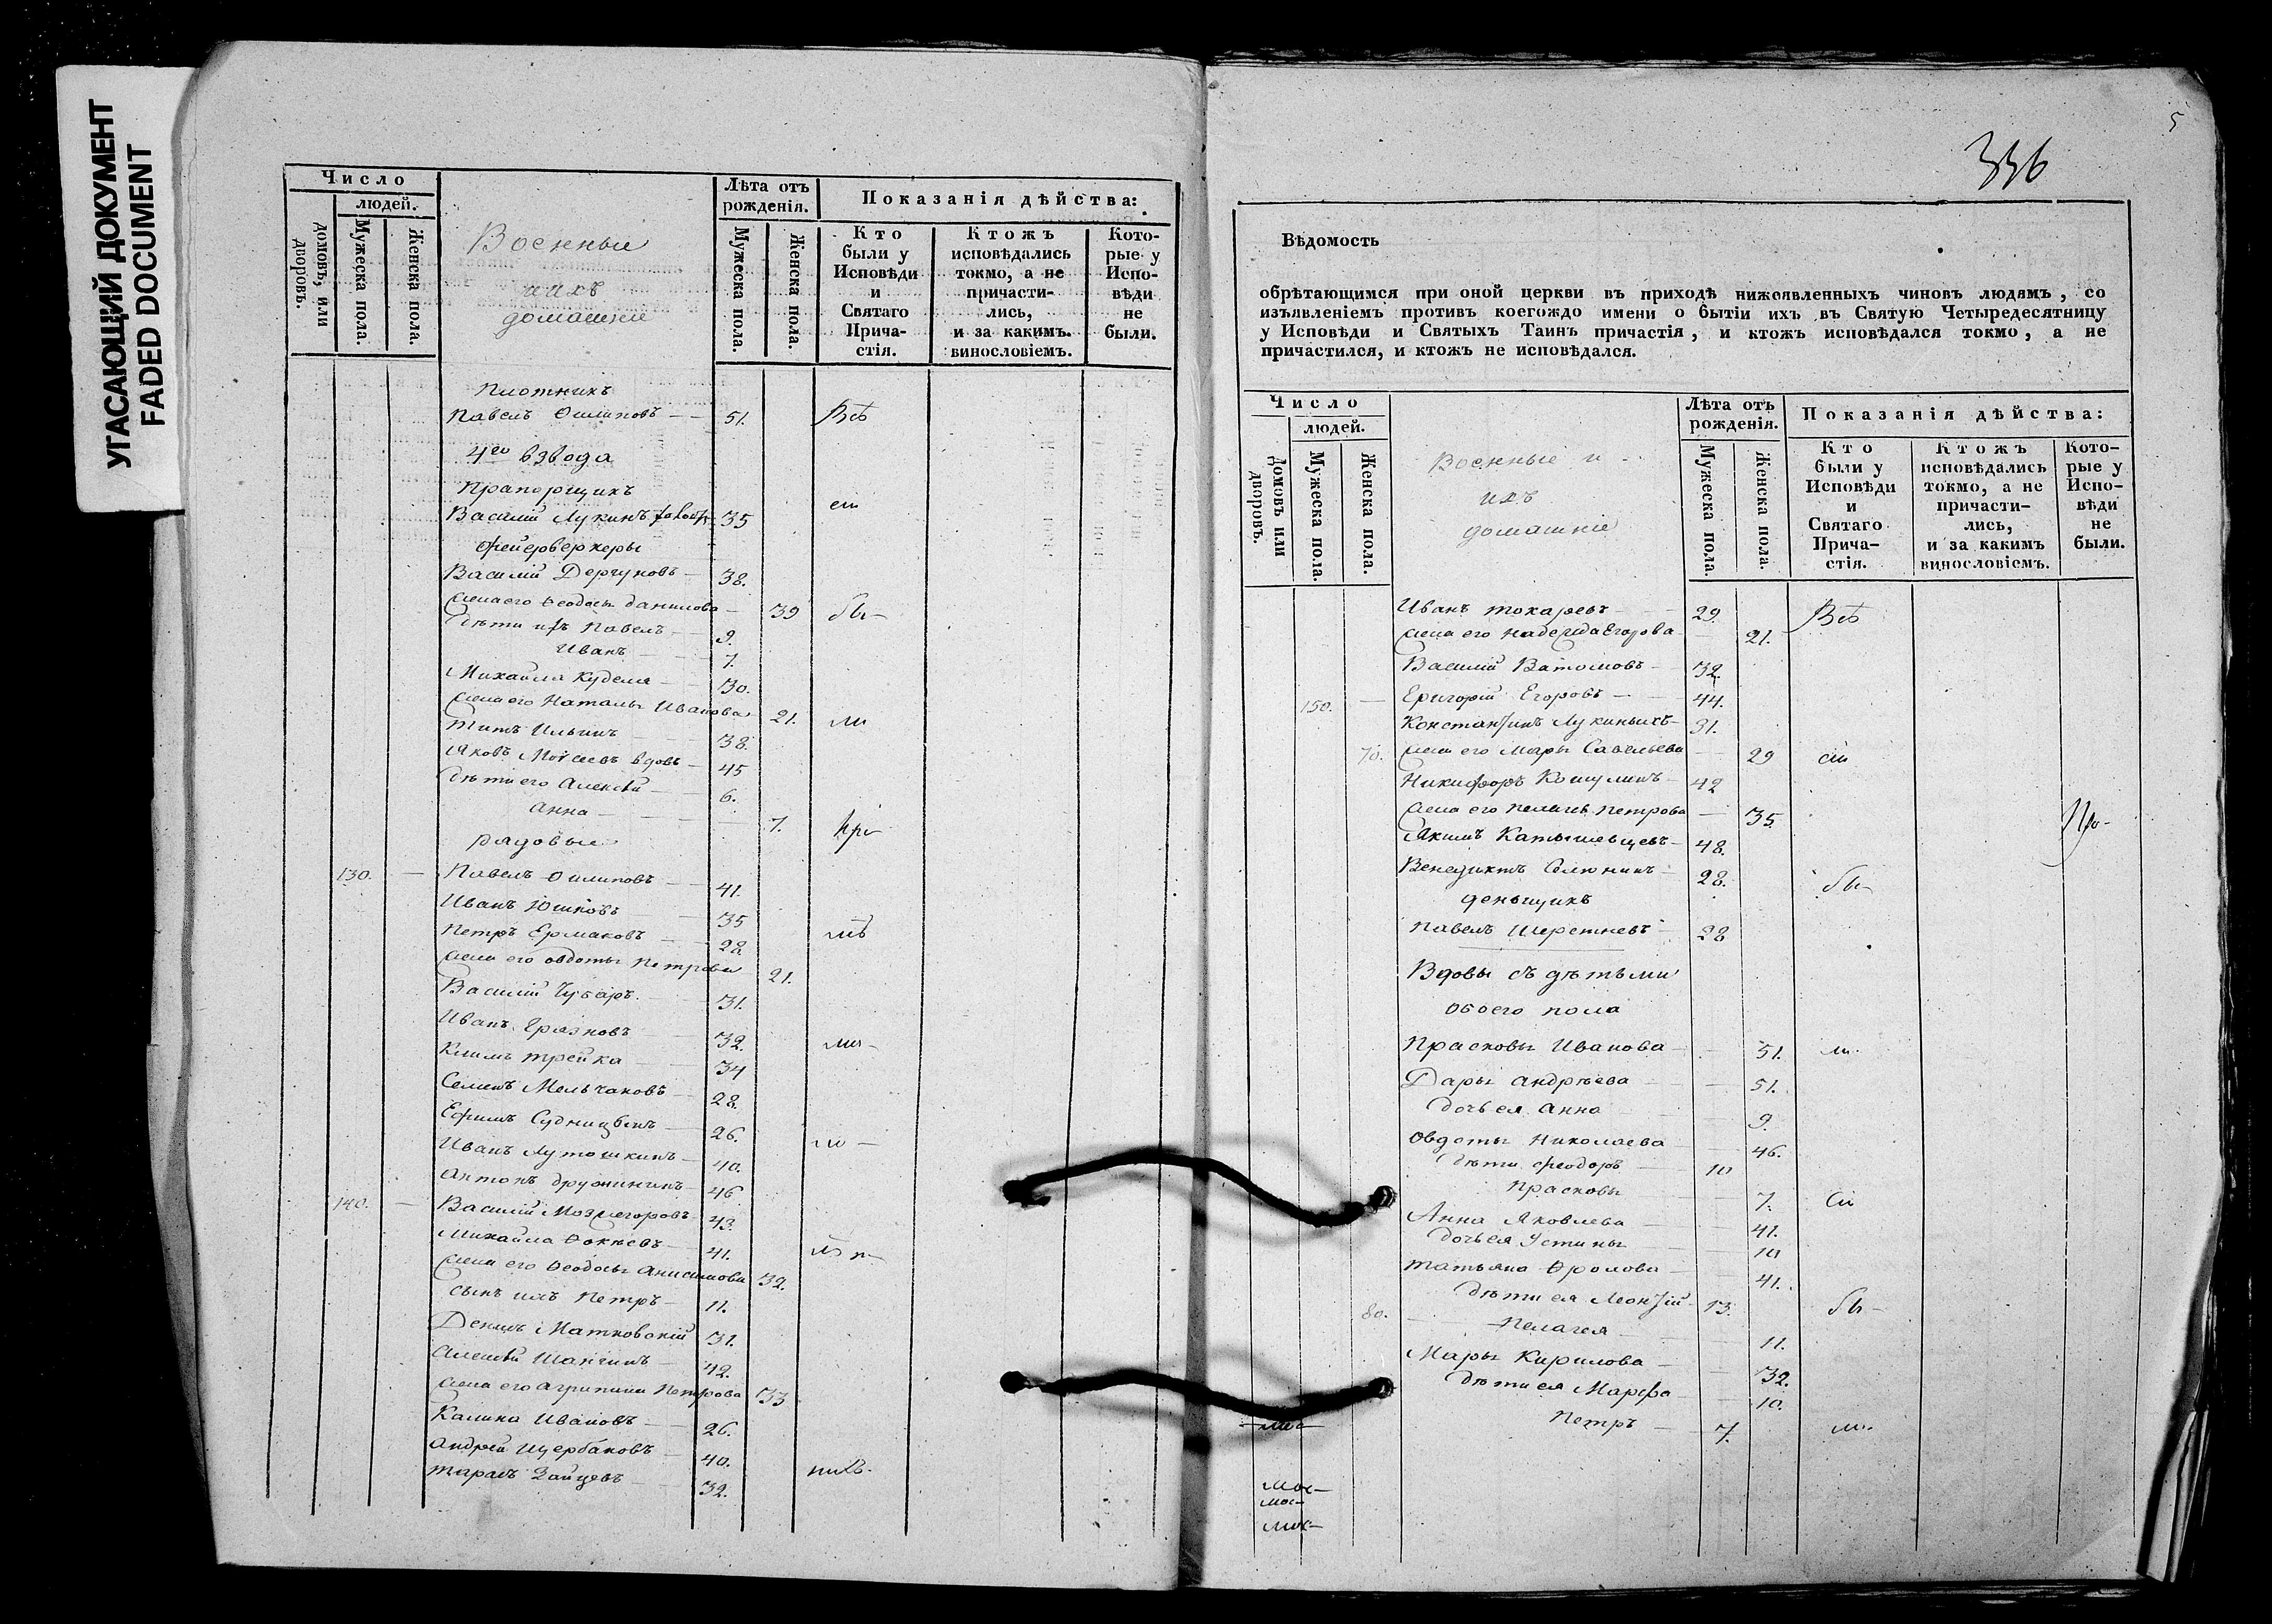 УГАСАЮЩИЙ ДОКУМЕНТ
FADED DOCUMENT
Число
людей.
домовъ, или дворовъ.
Мужеска пола.
Женска пола.
Военные
ихъ
домашніе
Лѣта отъ рожденія.
Мужеска пола.
Женска пола.
Показанія дѣйства:
Кто были у Исповѣди и Святаго Прича-стія.
Ктожъ исповѣдались токмо, а не причасти-лись, и за какимъ винословіемъ.
Кото-рые у Испо-вѣди не были.
Плотникъ
Павелъ Ѳилиповъ 51. Всѣ
4го взвода
Прапорщикъ
Василій Лукинъ 35 сіи
Фейерверкеры
Василій Дергуновъ 38.
жена его Ѳеодосья Данилова 39 бы-
дѣти ихъ Павелъ 9.
Иванъ 7.
Михайла Куделя 30.
жена его Наталья Иванова 21. ли
Титъ Ильинъ 38.
Яковъ Моѵсеевъ вдовъ 45
дѣти его Алексѣй 6.
Анна 7. при
рядовые
130. Павелъ Ѳилиповъ 41.
Иванъ Юшковъ 35
Петръ Ермаковъ 28.
жена его Овдотья Петрова 21.
Василій Чубаръ 31.
Иванъ Грязновъ 32.
Климъ Трейка 34
Семенъ Мельчаковъ 28.
Ефимъ 26.
Иванъ Лутошкинъ 40.
Антонъ Дружининъ 46
140. Василій Мозжегоровъ 43.
Михайла Ѳокѣевъ 41.
жена его Ѳеодосья Анисимова 32.
сынъ ихъ Петръ 11.
Денисъ Матковскій 31.
Алексѣй Шангинъ 42.
жена его Агрипина Петрова 33
Калина Ивановъ 26.
Андрей Щербаковъ 40.
Тарасъ Зайцевъ 32.
5
336
Вѣдомость
обрѣтающимся при оной церкви въ приходѣ нижеявленныхъ чиновъ людямъ, со
изъявленіемъ противъ коегождо имени о бытіи ихъ въ Святую Четыредесятницу
у Исповѣди и Святыхъ Таинъ причастія, и ктожъ исповѣдался токмо, а не
причастился, и ктожъ не исповѣдался.
Число
людей.
домовъ или дворовъ.
Мужеска пола.
Женска пола.
Военные и
ихъ
домашніе
Лѣта отъ рожденія.
Мужеска пола.
Женска пола.
Показанія дѣйства:
Кто были у Исповѣди и Святаго Прича-стія.
Ктожъ исповѣдались токмо, а не причасти-лись, и за какимъ винословіемъ.
Кото-рые у Испо-вѣди не были.
Иванъ Токаревъ 29. Всѣ
жена его Надежда Егорова 21.
Василій Ватомовъ 32.
150. Григорій Егоровъ 44.
Константинъ Лукиныхъ 31.
70. жена его Марья Савельева 29 сіи
Никифоръ Кошулинъ 42
жена его Пелагея Петрова 35.
Якимъ Катышевцевъ 48.
Венедиктъ Селюнинъ 28. бы-
деньщикъ
Павелъ Шеретневъ 28
Вдовы съ дѣтьми
обоего пола
Прасковья Иванова 51. ли
Дарья Андрѣева 51.
дочь ея Анна 9.
Овдотья Николаева 46.
дѣти Феодоръ 10
Прасковья 7. Сіи
Анна Яковлева 41.
дочь ея Устинья 10
Татьяна Ѳролова 41.
дѣти ея Леонтій 13. бы-
80. Пелагея 11.
Марья Кирилова 32.
дѣти ея Марфа 10.
Петръ 7. ли